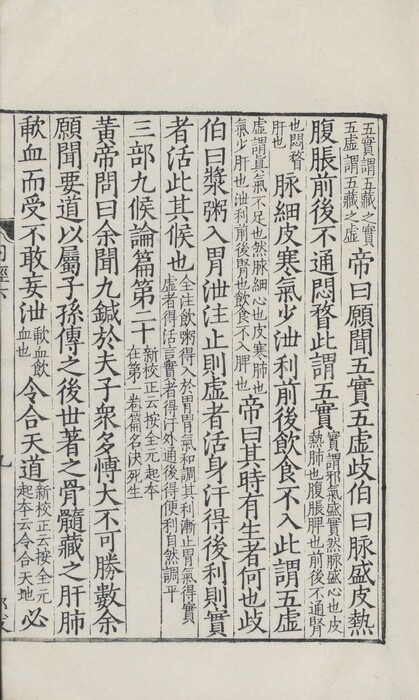 五實謂五藏之實五虛謂五藏之虛帝曰願聞五實五虛歧伯曰脉盛皮熱
腹脹前後不通悶瞀此謂五實實謂邪氣盛實然脉盛心也皮熱肺也腹脹脾也前後不通腎
也悶瞀肝也脉細皮寒氣少泄利前後飲食不入此謂五虛
虛謂真氣不足也然脉細心也皮寒肺也氣少肝也泄利前後腎也飲食不入脾也帝曰其時有生者何也歧
伯曰漿粥入胃泄注止則虛者活身汗得後利則實
者活此其候也全注飲粥得入於胃胃氣和調其利漸止胃氣得實虛者得活言實者得汗外通後得便利自然調平
三部九候論篇第二十新校正云按全元起本在第一卷篇名決死生
黃帝問曰余聞九鍼於夫子衆多愽大不可勝數余
願聞要道以屬子孫傳之後世著之骨髓藏之肝肺
歃血而受不敢妄泄歃血飲血也令合天道新校正云按全元起本云令合天地必